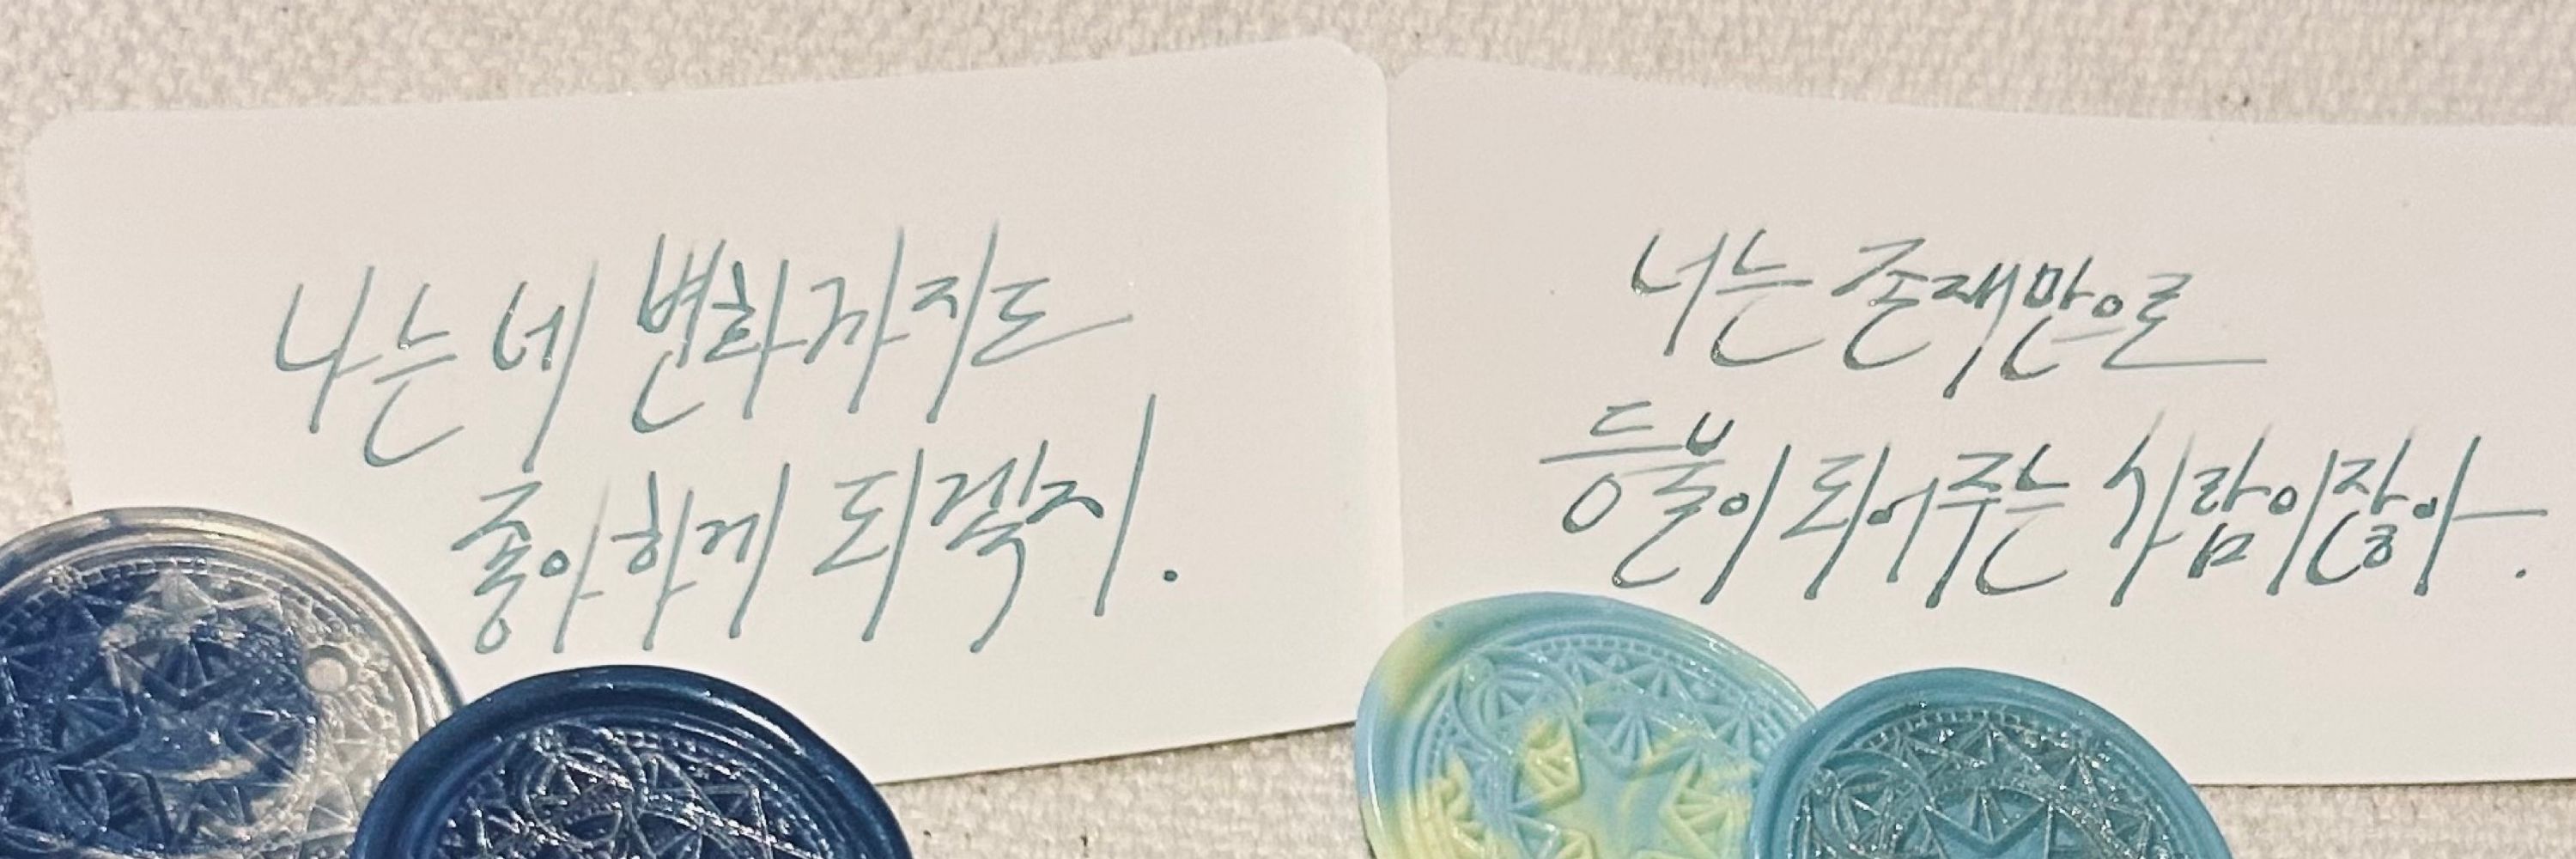 나는 네 변화까지도
좋아하게 되겠지.
너는 존재만으로
등불이 되어주는 사람이잖아.